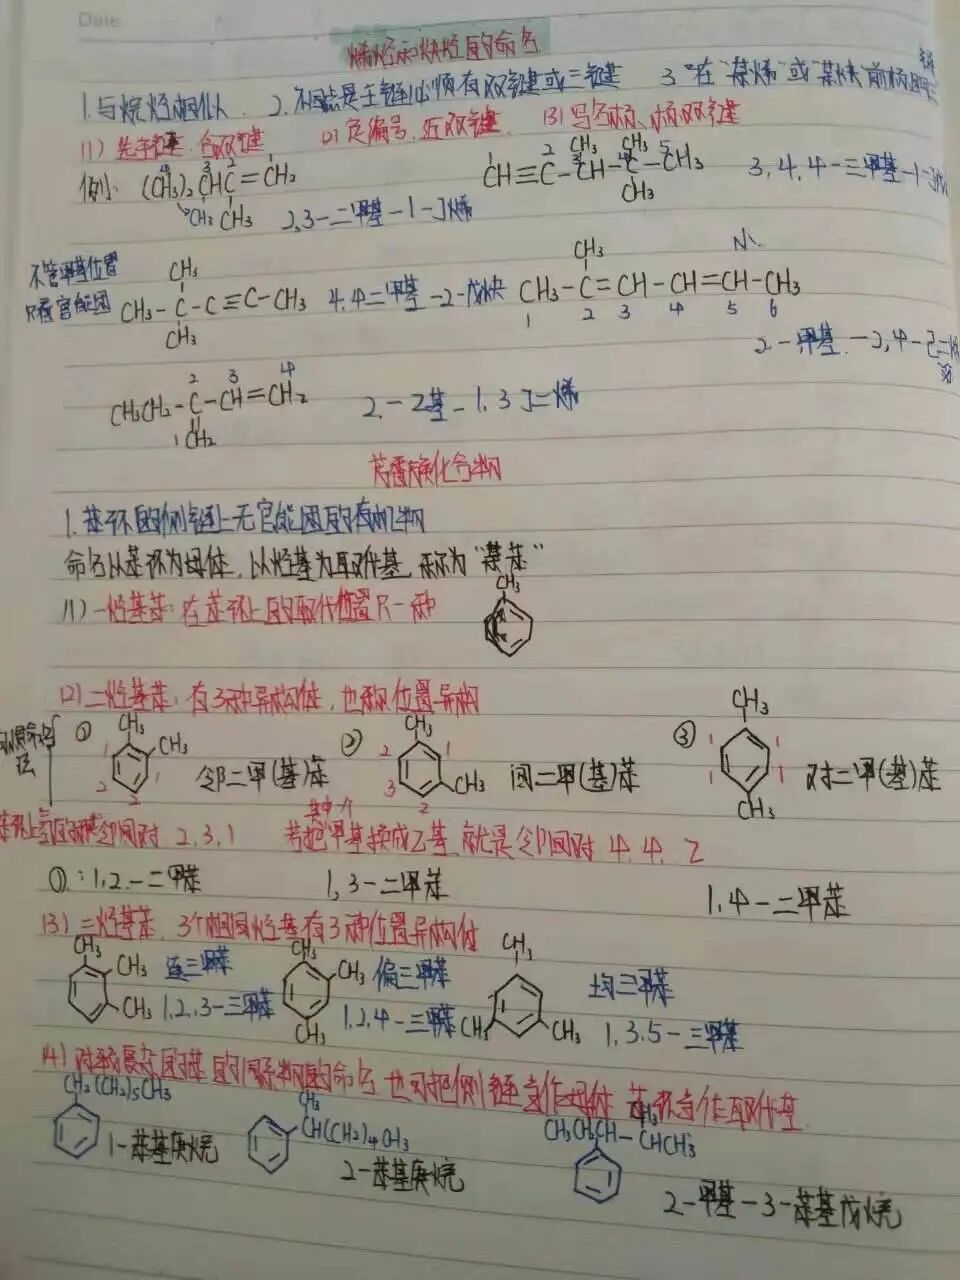 Date
烯烃和炔烃的命名
1.与烷烃相似 2.不同点是主链必须有双键或三键 3.在"某烯"或"某炔"前标明
(1)先字链,含双键 (2)定编号,近双键 (3)写名称,标双键
例:(CH₃)₂CHC=CH₂ CH≡C-CH-C-CH₃ 3,4,4-三甲基-1-戊炔
CH₃ 2,3-二甲基-1-丁烯
不管甲基位置
只看官能团 CH₃-C-C≡C-CH₃ 4,4二甲基-2-戊炔 CH₃-C=CH-CH=CH-CH₃
CH₃ 1 2 3 4 5 6
2-甲基-2,4-己二烯
CH₃CH₂-C-CH=CH₂ 2-乙基-1,3丁二烯
CH₂
1.苯环的侧链上无官能团的有机物
命名以苯环为母体,以烃基为取代基,称为"某苯"
(1)一烃基苯:在苯环上的取代位置只一种
CH₃
(2)二烃基苯:有3种异构体,也称位置异构
① CH₃ CH₃ 邻二甲(基)苯 ② CH₃ CH₃ 间二甲(基)苯 ③ CH₃ CH₃ 对二甲(基)苯
邻间对 2,3,1 若把其中一个甲基换成乙基,就是邻间对 4,4,2
①:1,2-二甲苯 1,3-二甲苯 1,4-二甲苯
(3)三烃基苯,3个相同烃基有3种位置异构体
CH₃ CH₃ CH₃ 连三甲苯 CH₃ CH₃ CH₃ 偏三甲苯 CH₃ CH₃ CH₃ 均三甲苯
1,2,3-三甲苯 1,2,4-三甲苯 1,3,5-三甲苯
(4)对较复杂的苯的同系物的命名,也可把侧链当作母体,苯环当作取代基
CH₂(CH₂)₅CH₃ CH₃ CH(CH₂)₄CH₃ CH₃CH₂CH-CHCH₃ CH₃
1-苯基庚烷 2-苯基庚烷 2-甲基-3-苯基戊烷